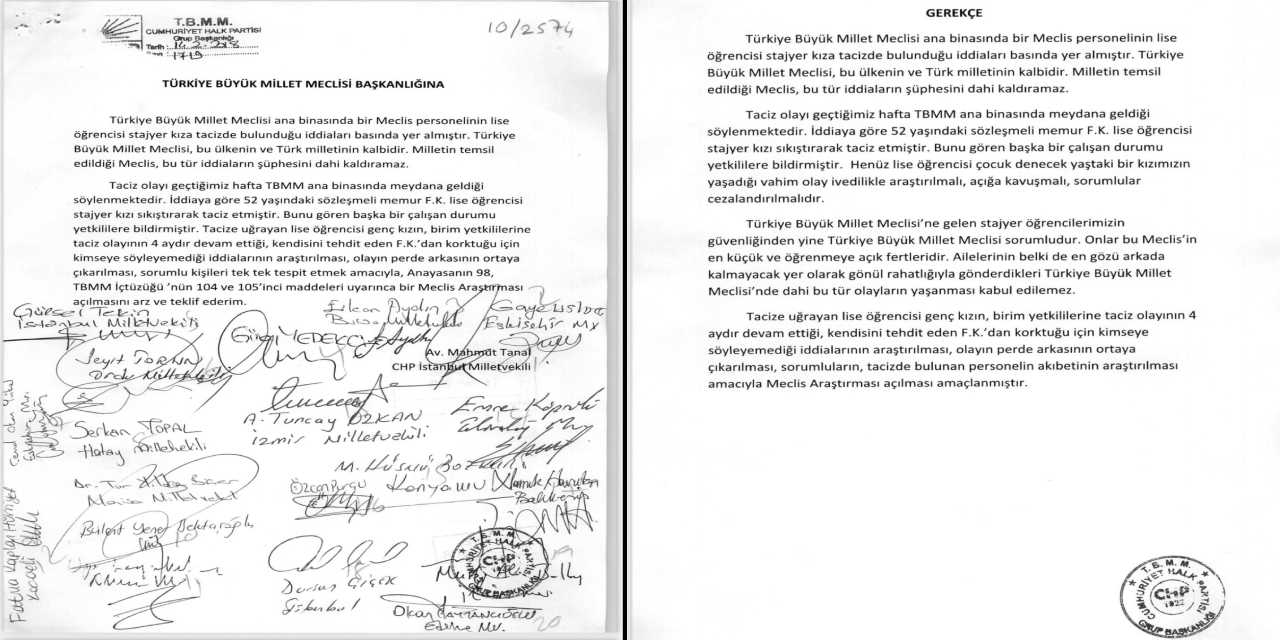 T.B.M.M.
CUMHURİYET HALK PARTİSİ
Grup Başkanlığı
Tarih :
1719
10/2574
TÜRKİYE BÜYÜK MİLLET MECLİSİ BAŞKANLIĞINA
Türkiye Büyük Millet Meclisi ana binasında bir Meclis personelinin lise
öğrencisi stajyer kıza tacizde bulunduğu iddiaları basında yer almıştır. Türkiye
Büyük Millet Meclisi, bu ülkenin ve Türk milletinin kalbidir. Milletin temsil
edildiği Meclis, bu tür iddiaların şüphesini dahi kaldıramaz.
Taciz olayı geçtiğimiz hafta TBMM ana binasında meydana geldiği
söylenmektedir. İddiaya göre 52 yaşındaki sözleşmeli memur F.K. lise öğrencisi
stajyer kızı sıkıştırarak taciz etmiştir. Bunu gören başka bir çalışan durumu
yetkililere bildirmiştir. Tacize uğrayan lise öğrencisi genç kızın, birim yetkililerine
taciz olayının 4 aydır devam ettiği, kendisini tehdit eden F.K.'dan korktuğu için
kimseye söyleyemediği iddialarının araştırılması, olayın perde arkasının ortaya
çıkarılması, sorumlu kişileri tek tek tespit etmek amacıyla, Anayasanın 98,
TBMM İçtüzüğü 'nün 104 ve 105'inci maddeleri uyarınca bir Meclis Araştırması
açılmasını arz ve teklif ederim.
Gürsel Tekin
İstanbul Milletvekili
Erkan Aydın
Gaye Usluer
Eskişehir Mv
Av. Mahmut Tanal
CHP İstanbul Milletvekili
Seyit TORUN
Ordu Milletvekili
A. Tuncay ÖZKAN
İzmir Milletvekili
Serkan TOPAL
Hatay Milletvekili
Dr. Tur Yıldız Biçer
Manisa Milletvekili
Fatma Kaplan Hürriyet
Kocaeli
Dursun Çiçek
İstanbul
Okan Gaytancıoğlu
Edirne Mv.
20
T.B.M.M.
CUMHURİYET HALK PARTİSİ
CHP
GRUP BAŞKANLIĞI
GEREKÇE
Türkiye Büyük Millet Meclisi ana binasında bir Meclis personelinin lise
öğrencisi stajyer kıza tacizde bulunduğu iddiaları basında yer almıştır. Türkiye
Büyük Millet Meclisi, bu ülkenin ve Türk milletinin kalbidir. Milletin temsil
edildiği Meclis, bu tür iddiaların şüphesini dahi kaldıramaz.
Taciz olayı geçtiğimiz hafta TBMM ana binasında meydana geldiği
söylenmektedir. İddiaya göre 52 yaşındaki sözleşmeli memur F.K. lise öğrencisi
stajyer kızı sıkıştırarak taciz etmiştir. Bunu gören başka bir çalışan durumu
yetkililere bildirmiştir. Henüz lise öğrencisi çocuk denecek yaştaki bir kızımızın
yaşadığı vahim olay ivedilikle araştırılmalı, açığa kavuşmalı, sorumlular
cezalandırılmalıdır.
Türkiye Büyük Millet Meclisi'ne gelen stajyer öğrencilerimizin
güvenliğinden yine Türkiye Büyük Millet Meclisi sorumludur. Onlar bu Meclis'in
en küçük ve öğrenmeye açık fertleridir. Ailelerinin belki de en gözü arkada
kalmayacak yer olarak gönül rahatlığıyla gönderdikleri Türkiye Büyük Millet
Meclisi'nde dahi bu tür olayların yaşanması kabul edilemez.
Tacize uğrayan lise öğrencisi genç kızın, birim yetkililerine taciz olayının 4
aydır devam ettiği, kendisini tehdit eden F.K.'dan korktuğu için kimseye
söyleyemediği iddialarının araştırılması, olayın perde arkasının ortaya
çıkarılması, sorumluların, tacizde bulunan personelin akıbetinin araştırılması
amacıyla Meclis Araştırması açılması amaçlanmıştır.
T.B.M.M.
CUMHURİYET HALK PARTİSİ
CHP
1923
GRUP BAŞKANLIĞI